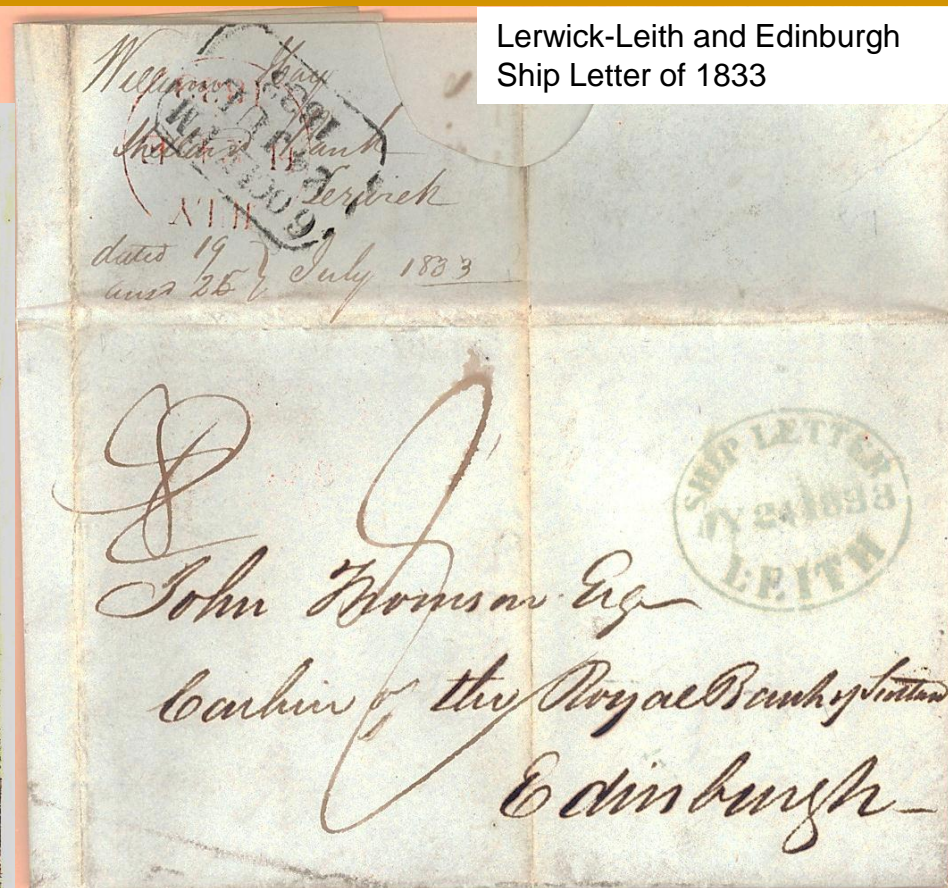 Lerwick-Leith and Edinburgh
Ship Letter of 1833
William Hay
Shetland Bank
Lerwick
dated 19 July 1833
ansd 25
SHIP LETTER
JY 24 1833
LEITH
John Thomson Esq
Cashier of the Royal Bank of Scotland
Edinburgh